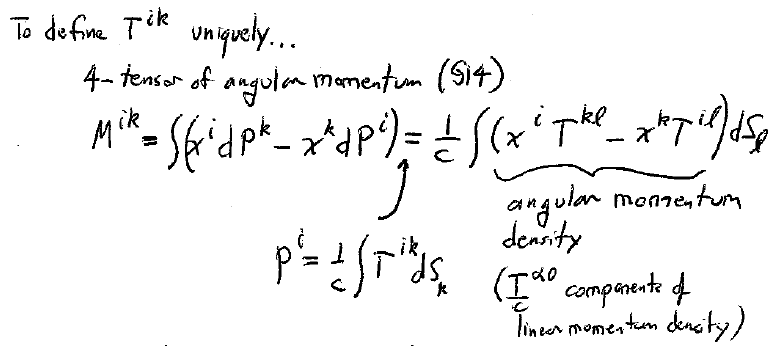 To define T^{ik} uniquely...
4-tensor of angular momentum (§14)
M^{ik} = ∫(x^i dP^k - x^k dP^i) = 1/c ∫(x^i T^{kl} - x^k T^{il}) dS_l
angular momentum
density
P^i = 1/c ∫ T^{ik} dS_k
(T^{α0}/c components of
linear momentum density)